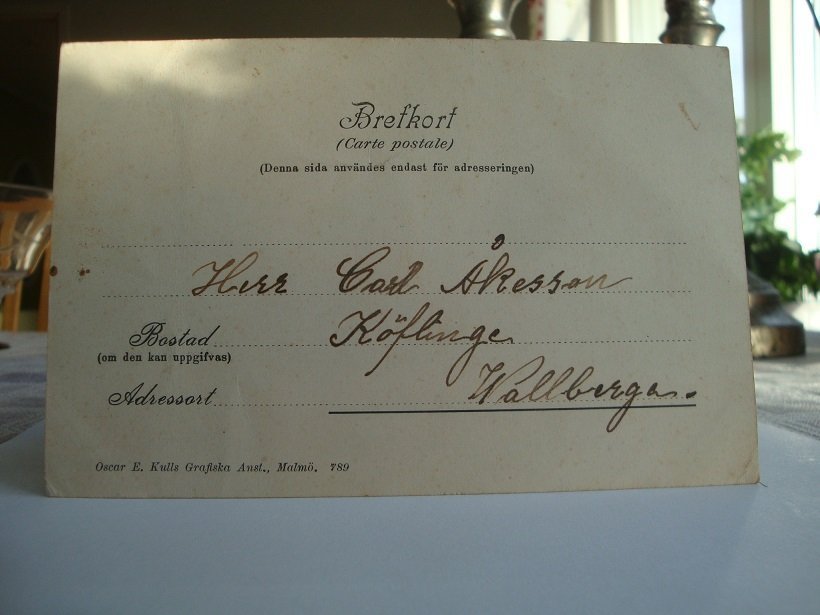 Brefkort
(Carte postale)
(Denna sida användes endast för adresseringen)
Herr Carl Åkesson
Bostad Köflinge
(om den kan uppgifvas)
Adressort Wallberga.
Oscar E. Kulls Grafiska Anst., Malmö. 789